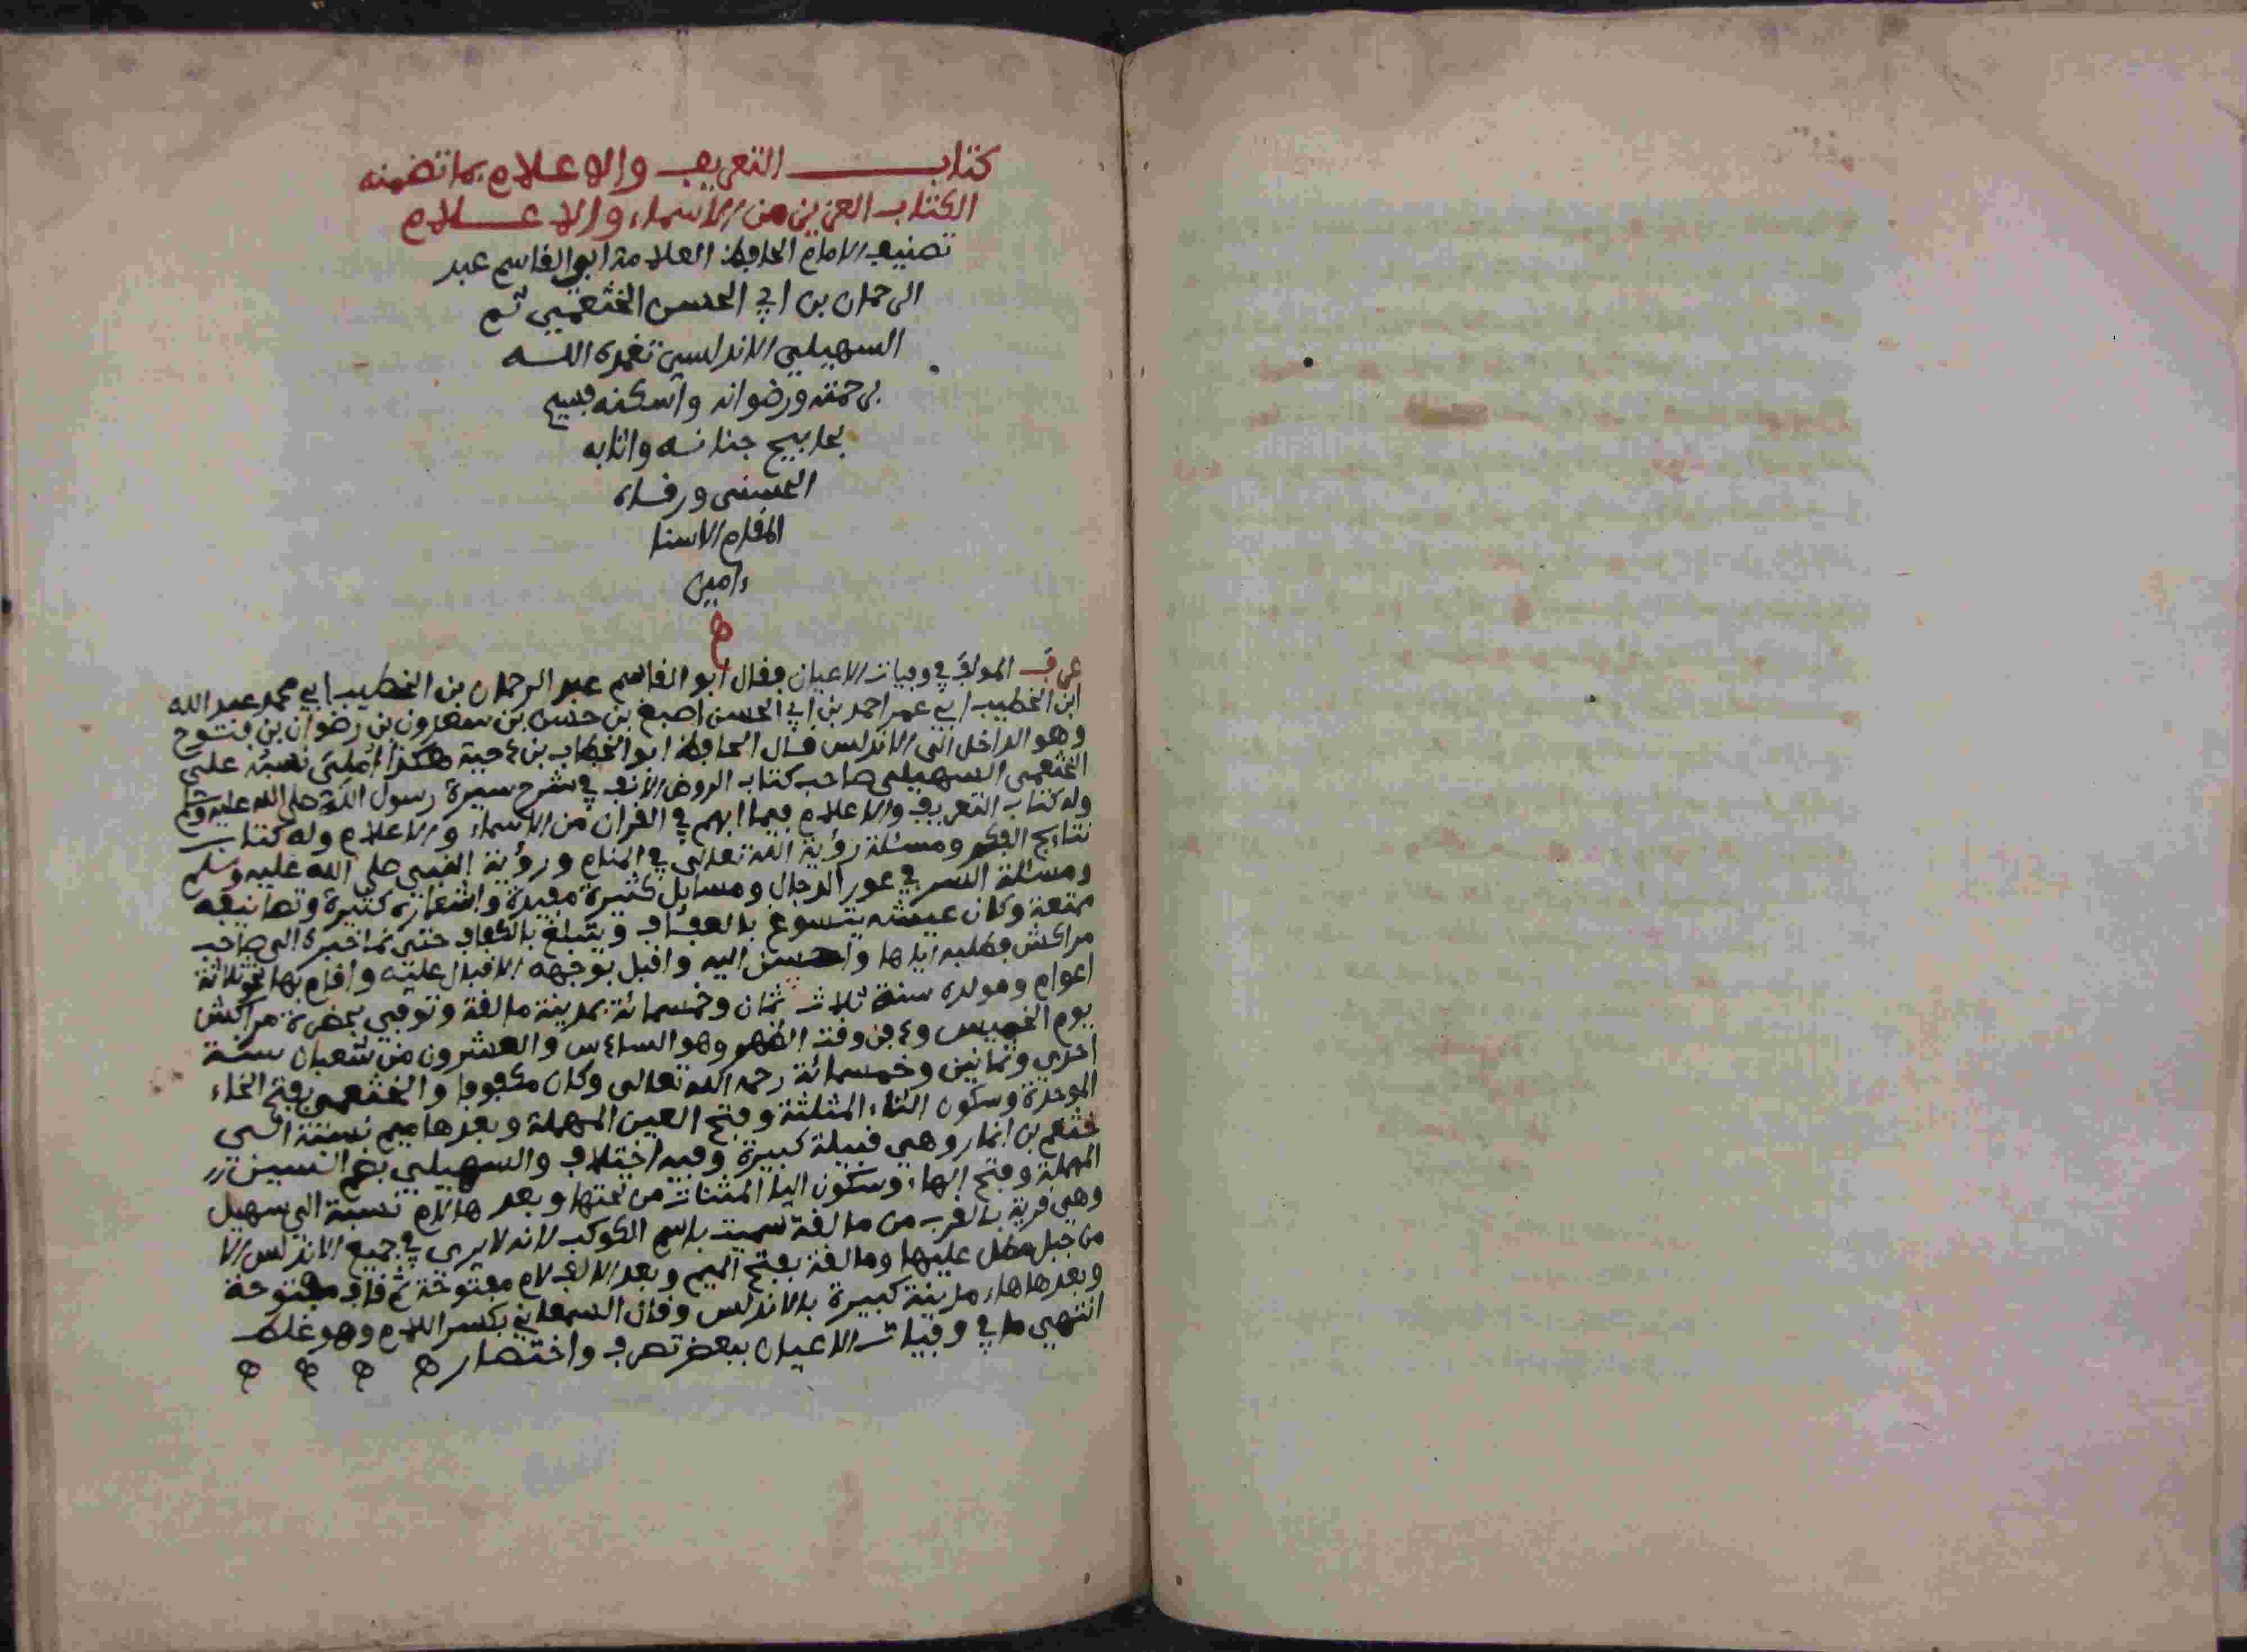 كتاب التعريف والاعلام بما تضمنه
الكتاب العزيز من الأسماء والاعلام
تصنيف الامام الحافظ العلامة ابو القاسم عبد
الرحمان بن ابي الحسن الخثعمي ثم
السهيلي الاندلسي تغمده الله
برحمته ورضوانه وأسكنه فسيح
بحابيح جنانه واثابه
الحسنى ورقاه
المقام الاسنا
ءامين
عرف المولف في وفيات الاعيان فقال ابو القاسم عبد الرحمان بن الخطيب ابي محمد عبد الله
ابن الخطيب ابي عمر احمد بن ابي الحسن اصبغ بن حسن بن سعدون بن رضوان بن فتوح
وهو الداخل الى الاندلس قال الحافظ ابو الخطاب بن دحية هكذا أملى نسبه علي
الخثعمي السهيلي صاحب كتاب الروض الأنف في شرح سيرة رسول الله صلى الله عليه وسلم
وله كتاب التعريف والاعلام فيما ابهم في القرآن من الاسماء والاعلام وله كتاب
نتايج الفكر ومسئلة رؤية الله تعالى في المنام ورؤية النبي صلى الله عليه وسلم
ومسئلة السر في عور الدجال ومسايل كثيرة مفيدة واشعاره كثيرة وتصانيفه
ممتعة وكان عيشه يتسوغ بالعفاف ويتبلغ بالكفاف حتى نما خبره الى صاحب
مراكش فطلبه اليها واحسن اليه واقبل بوجهه الاقبال عليه وأقام بها نحو ثلاثة
اعوام ومولده سنة ثلاث ثمان وخمسمائة بمدينة مالقة وتوفي بحضرة مراكش
يوم الخميس ودفن وقت الظهر وهو السادس والعشرون من شعبان سنة
احدى وثمانين وخمسمائة رحمه الله تعالى وكان مكفوفا والخثعمي بفتح الخاء
الموحدة وسكون الثاء المثلثة وفتح العين المهملة وبعدها ميم نسبة الى
خثعم بن انمار وهي قبيلة كبيرة وفيه اختلاف والسهيلي بضم السين
المهملة وفتح الهاء وسكون اليا المثنات من تحتها وبعدها لام نسبة الى سهيل
وهي قرية بالقرب من مالقة سميت باسم الكوكب لانه لا يرى في جميع الاندلس الا
من جبل مطل عليها ومالقة بفتح الميم وبعد الالف لام مفتوحة ثم قاف مفتوحة
وبعدها هاء مدينة كبيرة بالاندلس وقال السمعاني بكسر اللام وهو غلط
انتهى ما في وفيات الاعيان ببعض تصرف واختصار